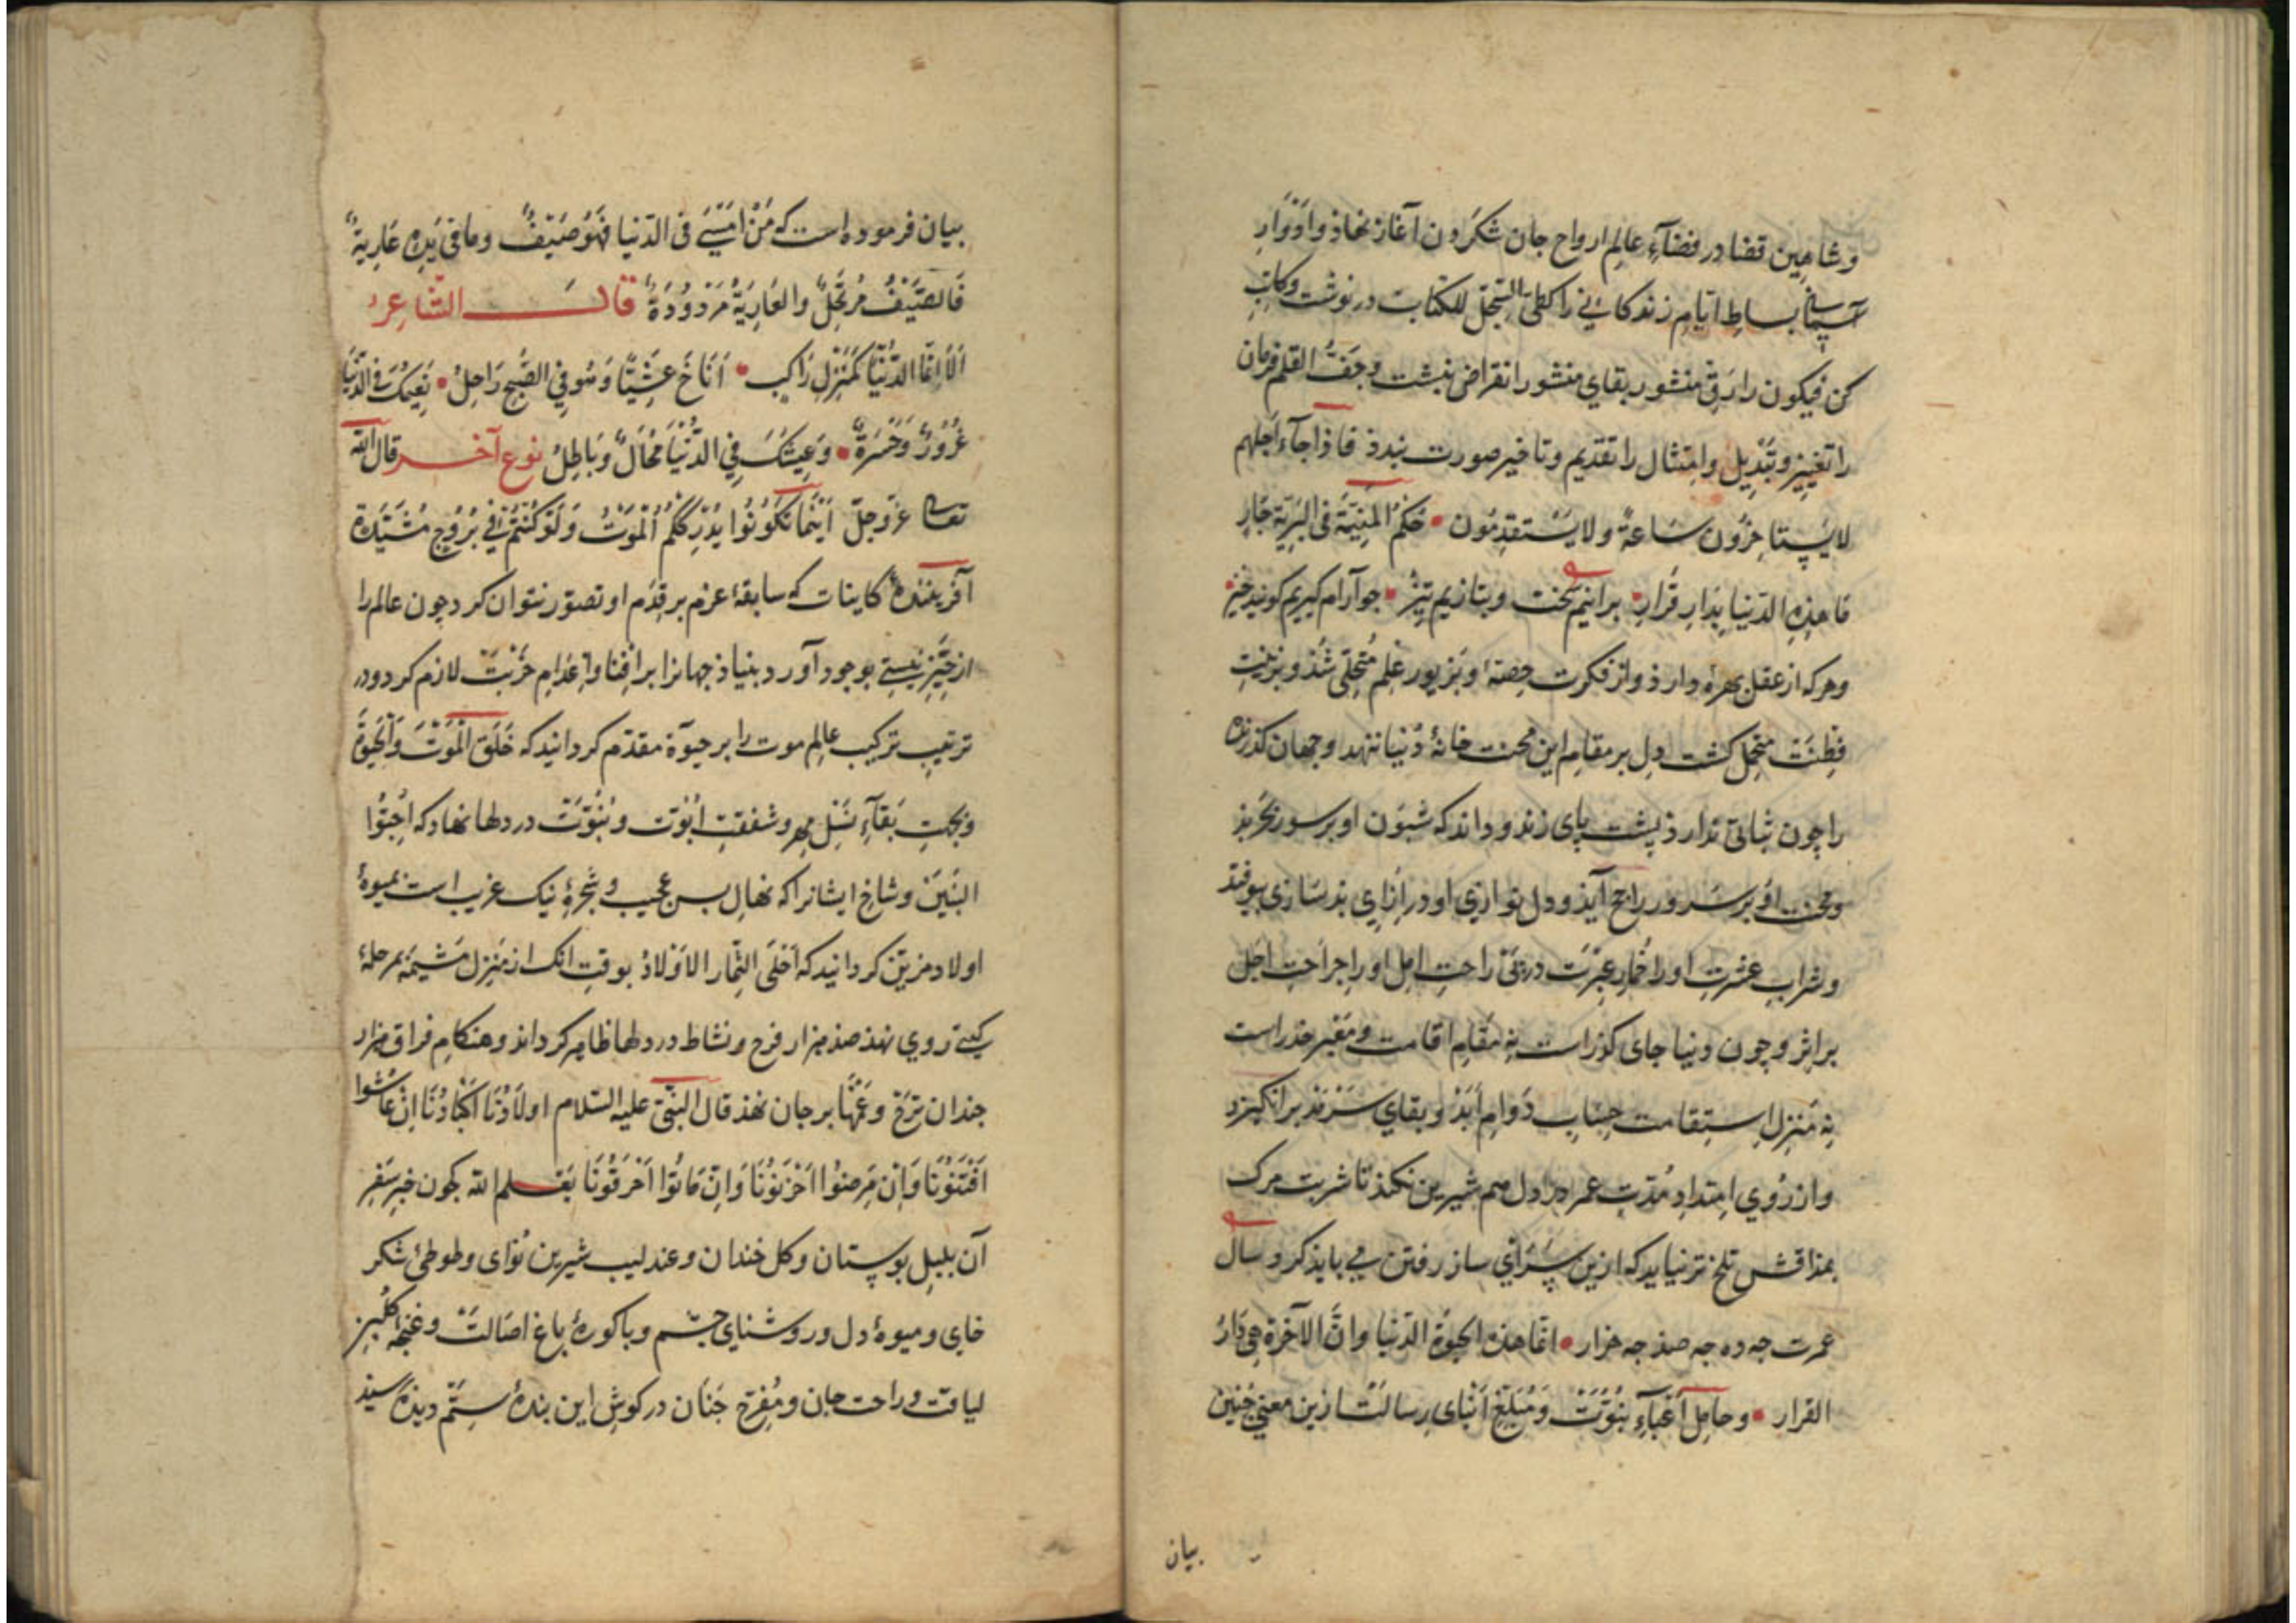 وشاهین قضا در فضآءِ عالمِ ارواح جان شکردن آغاز نهاذ وادوَارِ
آسیای بساطِ ایّامِ زندکانی را کطیّ السّجلّ للکتاب در نوشت وکاتبِ
کن فیکون را رَقّ منشور بقای منشور انقراض نبشت وجَفّ القلم فرمان
را تغییر وتبدیل وامتثال را تقدیم وتاخیر صورت نبندذ فاذا جآء اجلهم
لا یستاخرُون سَاعةً ولا یَستقدِمُون • حُکمُ المنِیّةِ فی البَرِیّةِ جَارِ
مَا هذِهِ الدّنیا بِدَارِ قَرَارِ • برانیم سخت وبتازیم تیز • جو آرام کیریم کویند خیز •
وهرکه از عقل بهرهٔ دارذ واز فکرت حِصّهٔ وبَزیور عِلم مُتحلّی شُذ وبزینتِ
فِطنَت متجمّل کشت دِل بر مقامِ این محنت خانهٔ دُنیا ننهد وجهان کذرنده
را چون ثباتی نَدارذ پشت پای زند وداند که شیون او بر سور بخربذ
ومحنت اوُ بر سُرور راجح آیذ ودل نوازیِ او در اِزایِ بذسَازی نیوفتد
وشرابِ عشرتِ او را خُمارِ عبرَت در پی راحتِ امل او را جراحتِ اجَل
بر اثر وچون دنیا جای کذراست نِه مَقَامِ اقامت ومَعبر حذراست
نِه مَنزلِ استِقامت حِسابِ دَوامِ اَبَذ وبقایِ سَرمَذ بر انکیزد
واز رُوی اِمتدادِ مُدّتِ عمر در دل هم شیرین نکند تا شربت مرک
بمذاقش تلخ تر نیاید که ازین سَرای ساز رفتن می بایذ کرد سال
عمرت جه ده جه صذ جه هزار • انّما هذه الحیوةُ الدّنیا وانَّ الآخرة هِیَ دَارُ
القرار • وحامِل اَعبآءِ نبُوّتَ وَمُبَلّغ اَنبای رِسالتَ ازین معنی چنین
بیان
بیان فرموده است که مَنْ اَمْسَیٰ فی الدّنیا فَهُوَ ضَیْفٌ وما فی یَدِهِ عَارِیةٌ
فَالضَّیْفُ مُرتَحِلٌ والعَارِیَةُ مَرْدُودَةٌ قالَ الشّاعِرُ
اَلَا اِنَّمَا الدُّنْیَا کَمَنْزِلِ رَاکِبٍ • اَنَاخَ عَشِیًّا وَهُوَ فِی الصُّبْحِ رَاحِلُ • نَعِیمُکَ فی الدُّنْیَا
غُرُورٌ وَحَسْرَةٌ • وَعَیْشُکَ فِی الدُّنْیَا مُحَالٌ وَبَاطِلُ نوعِ آخر قال الله
تعالی عزّ وجلّ اَیْنَمَا تَکُونُوا یُدْرِکْکُمُ الْمَوْتُ وَلَوْ کُنْتُمْ فِی بُرُوجٍ مُشَیَّدَةٍ
آفرینندهٔ کاینات که سابقهٔ عزم بر قِدَم او تصوّر نتوان کرد چون عالم را
از حَیّزِ نیستی بوجود آورد بنیاذ جهانرا بر اِفنا واِعدَامِ مرُتبّ لازم کرد ودر
ترتیب ترکیب عالِم موت را بر حیوٰة مقدّم کردانید که خَلَقَ الْمَوْتَ وَالْحَیٰوةَ
وبجهتِ بَقآءِ نَسْلِ مِهر وشفقتِ اُبُوّت وبُنُوّتَ در دلها نهاد که اُحِبُّوا
البَنِینَ وشاخِ ایشانرا که نهالِ بس عجیب وشجرهٔ نیک غریب است بمیوهٔ
اولاد مزین کردانید که اَحْلَی الثِّمار الاَوْلادُ بوقتِ آنک از مَنزل مَشیمَه بمرحلهٔ
کیتی روی نهذ صذ هزار فرح ونشاط در دلها ظاهر کرداند وهنکامِ فراق هزار
جندان تَرَح وغَمّها بر جان نهذ قال النبّی علیه السّلام اولاَدُنَا اَکْبَادُنَا اِنْ عَاشُوا
اَفْتَنُونَا وَاِنْ مَرِضُوْا اَحْزَنُونَا وَاِنْ مَاتُوْا اَحْرَقُونَا یَعْلم الله کجون خبرِ سَفرِ
آن بلبل بوستان وکل خندان وعندلیب شیرین نَوای وطوطئ شکر
خای ومیوهٔ دل وروشنای چشم وباکورهٔ باغ اصَالتَ وغنجه کلبن
لیاقت وراحت جان ومُفرّح جَنان در کوشِ این بندهٔ ستم دیده رسیذ